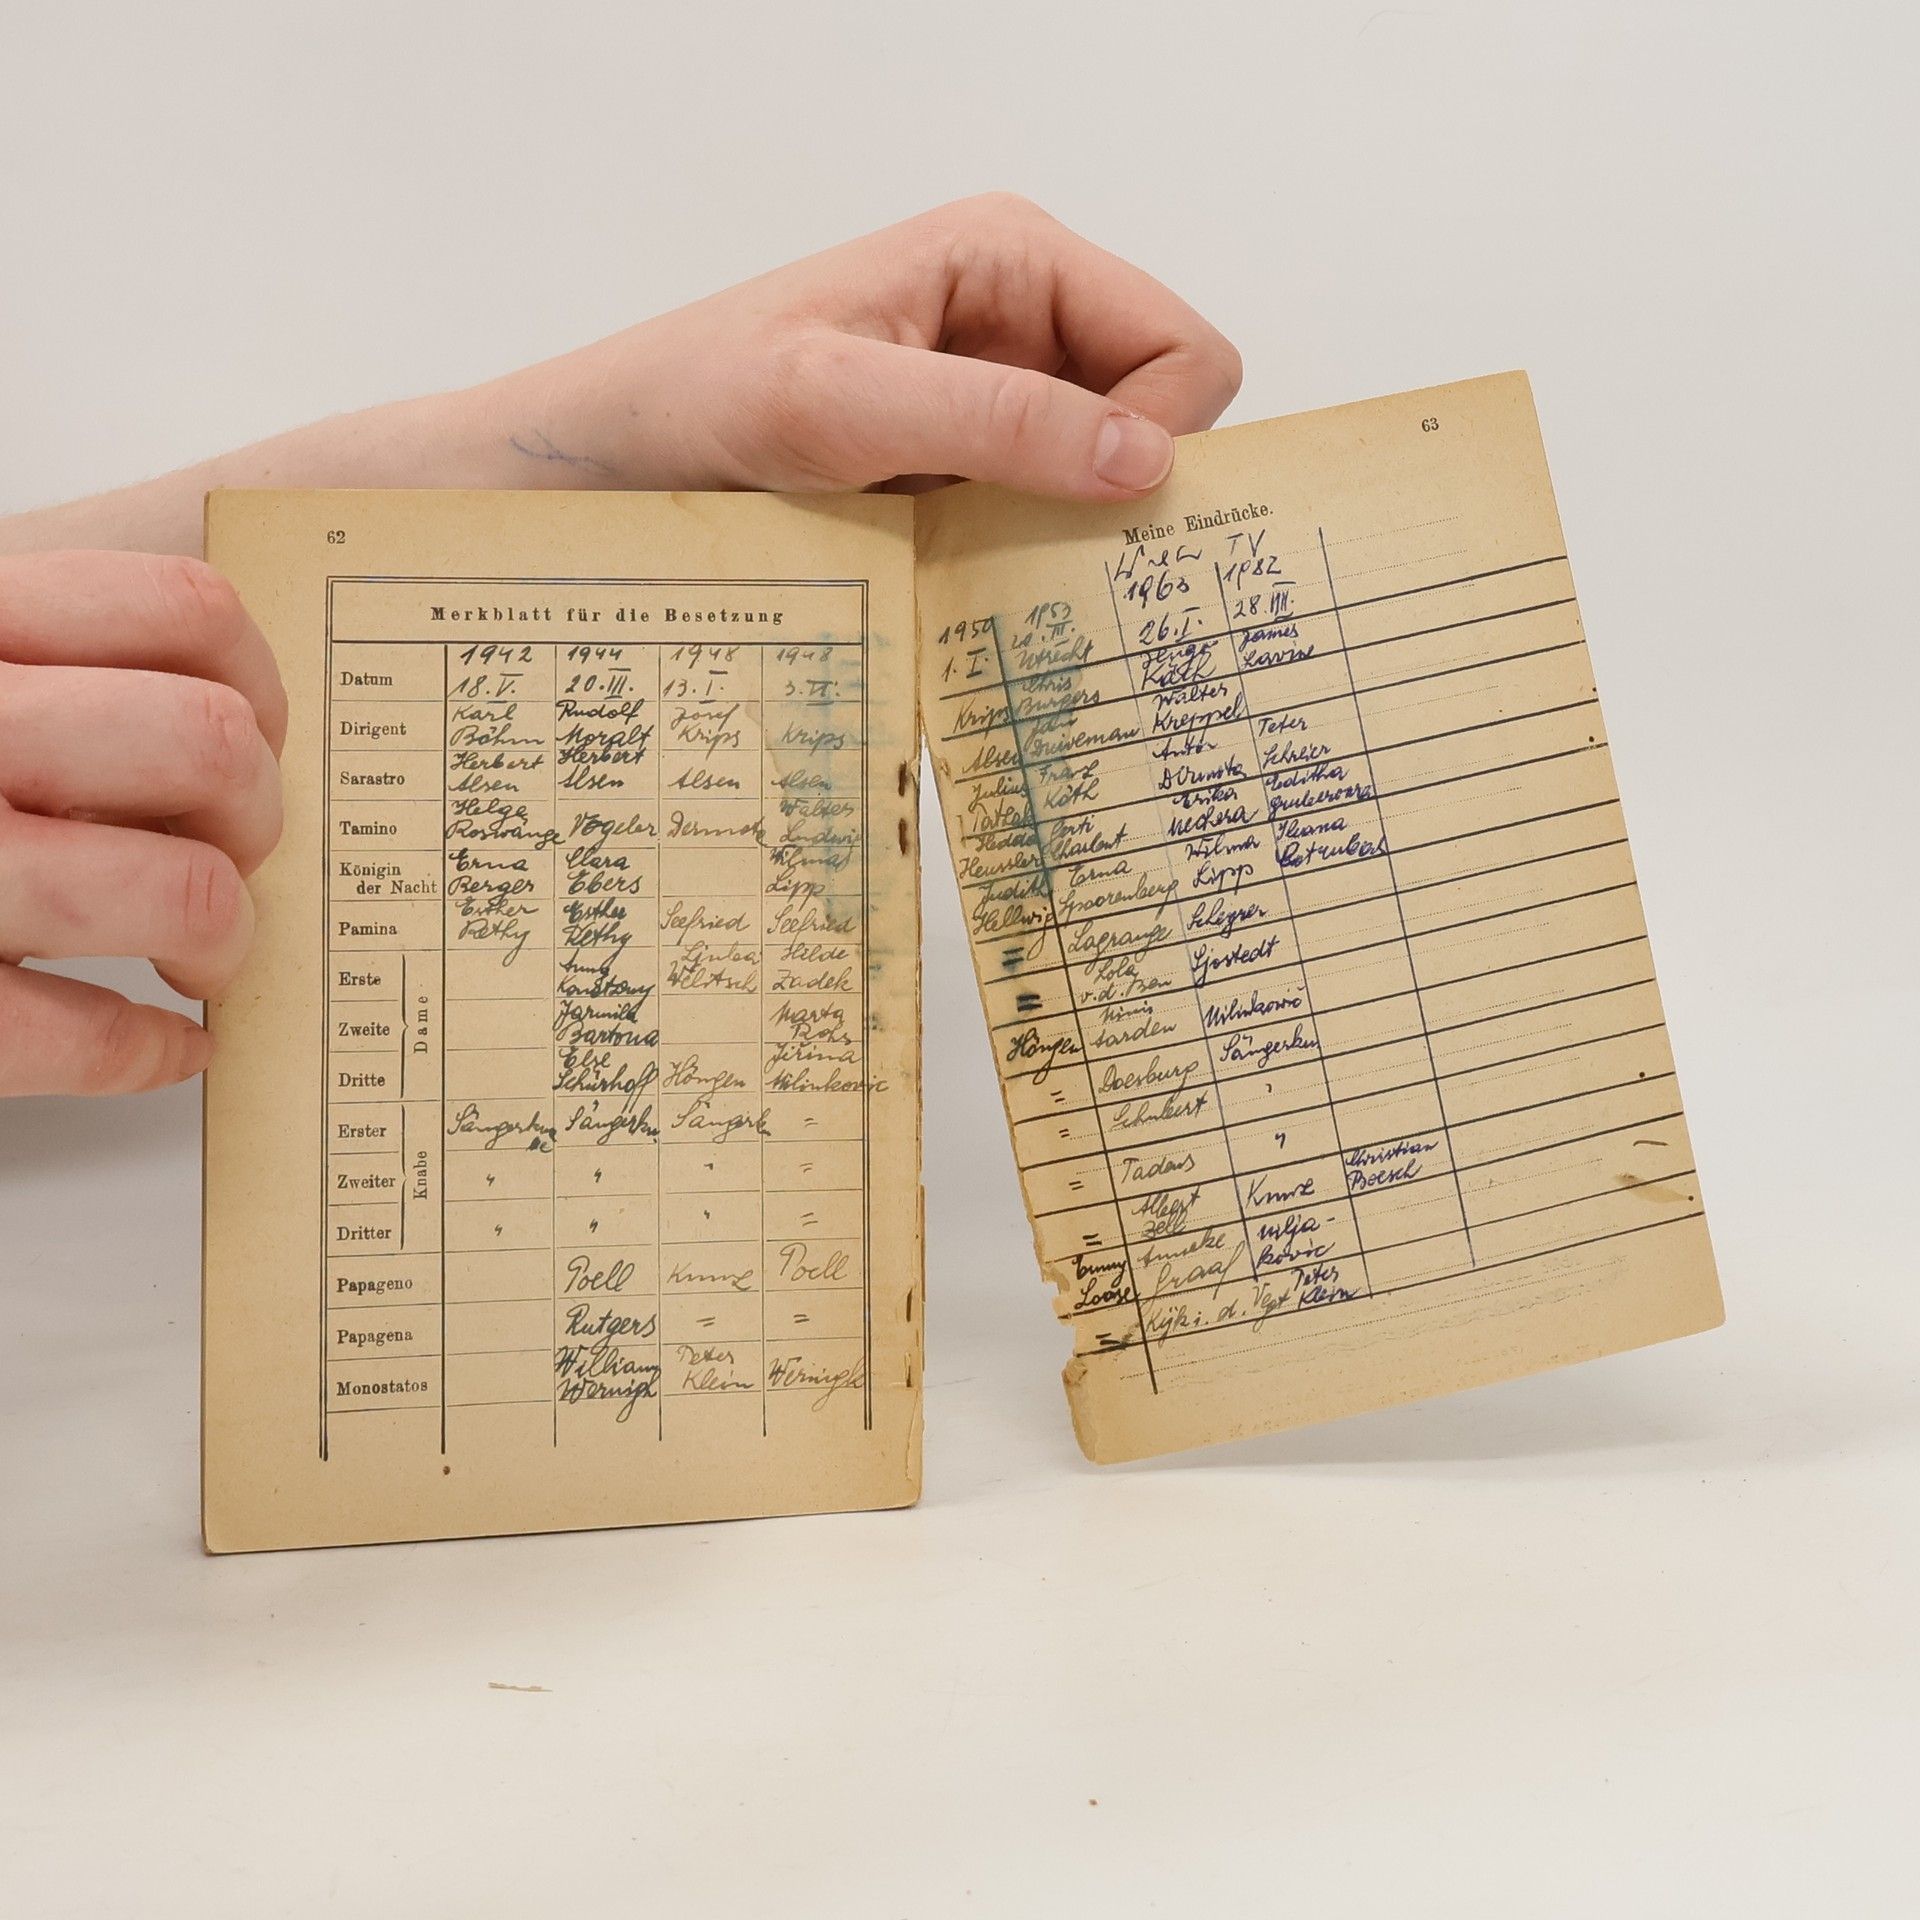 62
Merkblatt für die Besetzung
Datum 1942 18.V. 1944 20.III. 1948 13.I. 1948
Dirigent Karl Böhm Rudolf Moralt Josef Krips Krips
Sarastro Herbert Alsen Herbert Alsen Alsen Alsen
Tamino Helge Roswänge Vogeler Dermota Walter Ludwig
Königin der Nacht Erna Berger Clara Ebers Wilma Lipp
Pamina Esther Rethy Esther Rethy Seefried Seefried
Dame
Erste Anny Konetzny Ljuba Welitsch Hilde Zadek
Zweite Jarmila Bartona Marta Rohs
Dritte Else Schürhoff Höngen Jiřina Milinkovic
Knabe
Erster Sängerkna be Sängerkn. Sängerk =
Zweiter " " " =
Dritter " " " =
Papageno Poell Kunz Poell
Papagena Rutgers = =
Monostatos William Wernigk Peter Klein Wernigk
63
Meine Eindrücke.
Wien TV
1950 1953 1963 1982
1.I. 20.III. Utrecht 26.I. 28.III.
Krips Chris Burgers Hugo Käth James Lavine
Alsen Jan Duiveman Walter Kreppel
Julius Patzak Franz Köth Anton Dermota Peter Schreier
Hedda Heussler Corti Charlent Erika Mechera Editha Gruberova
Judith Hellwig Erna Spoorenberg Wilma Lipp Ileana Cotrubas
= Lagrange Scheyrer
= Lola v.d. Ben Sjostedt
Höngen Mimi Aarden Milinkovič
= Doesburg Sängerkn.
= Schubert "
= Tadeus "
= Albert Zell Kunz Christian Boesch
Emmy Loose Anneke Graaf Milja- kovic
= Kijk i. d. Vegt Peter Klein